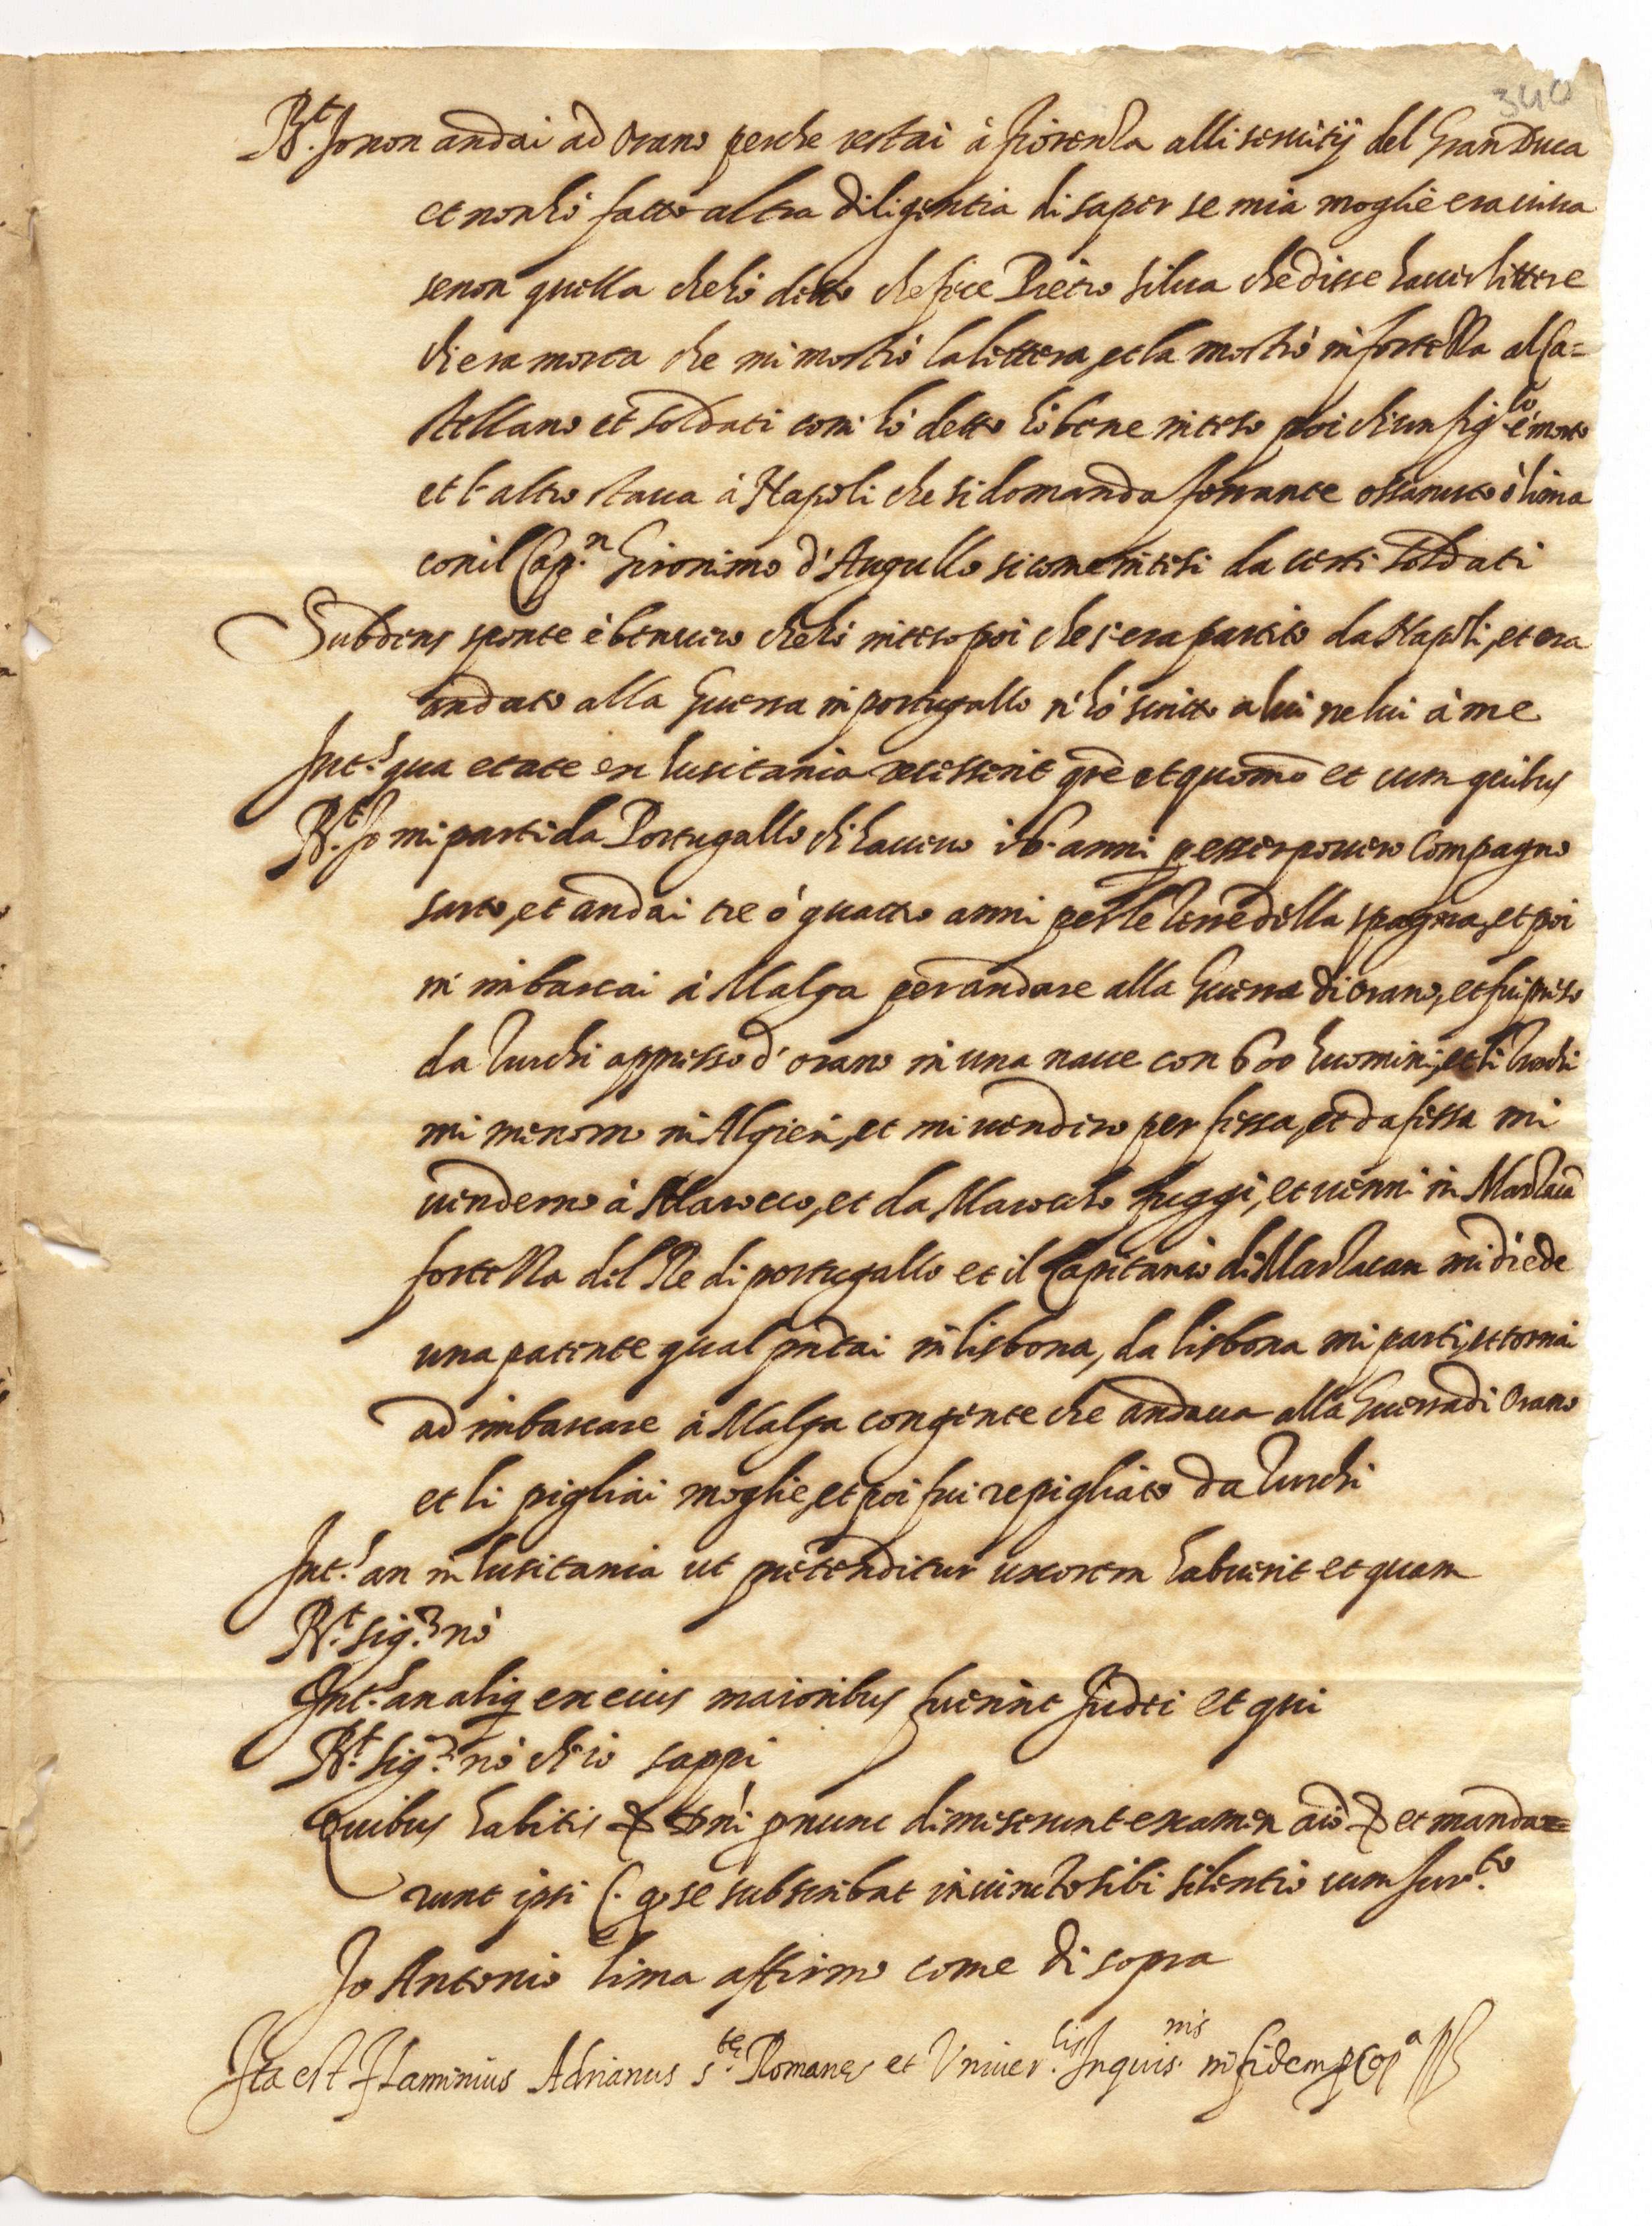 340
R.t Io non andai ad Orano perche restai à fiorenza alli servitij del Gran Duca
et non hò fatto altra diligentia di saper se mia moglie era viva
se non quella che hò detto che fece Pietro Silva che disse haver littere
ch'era morta che mi mostrò la littera, et la mostrò in fortezza al Ca=
stellano et soldati com' hò detto hò bene inteso poi ch'un fig.lo è morto
et l'altro stava à Napoli che si domanda ferrante ò lima
con il Cap.n Gironimo d'Augullo si come intesi da certi soldati
Subdens sponte è ben vero che hò inteso poi che s'era partito da Napoli, et era
andato alla Guerra in portugallo n'hò scritto a lui ne lui à me
Int.s qua etate ex lusitania recesserit qre et quomo et cum quibus
R.t Io mi parti da Portugallo ch'havevo 16 anni p esser povero Compagno
sarto, et andai tre ò quattro anni per le terre della spagna, et poi
m'imbarcai à Malga per andare alla Guerra di Orano, et fui preso
da Turchi appresso d'orano in una nave con 600 huomini, et li Turchi
mi menorno in Algieri, et mi vendero per fessa, et da fessa mi
venderno à Marocco, et da Marocco fuggi, et venni in Marzacà
fortezza del Re di portugallo et il Capitanio di Marzacan mi diede
una patente qual pntai in lisbona, da lisbona mi parti, et tornai
ad imbarcare à Malga con gente che andava alla Guerra di Orano
et li pigliai moglie, et poi fui repigliato da Turchi
Int.s an in lusitania ut pretenditur uxorem habuerit et quam
R.t sig.r nò
Int.s an aliq ex eius maioribus fuerint Judei et qui
R.t sig.r nò ch'io sappi
Quibus habitis & Dni p nunc dimiserunt examen aio & et manda=
runt ipsi C. q se subscribat iniuncto sibi silentio cum Jur.to
Io Antonio lima affermo come di sopra
Ita est Flaminius Adrianus s.tę Romanę et Univer.lis Inquis.nis in fidem p Cop.a